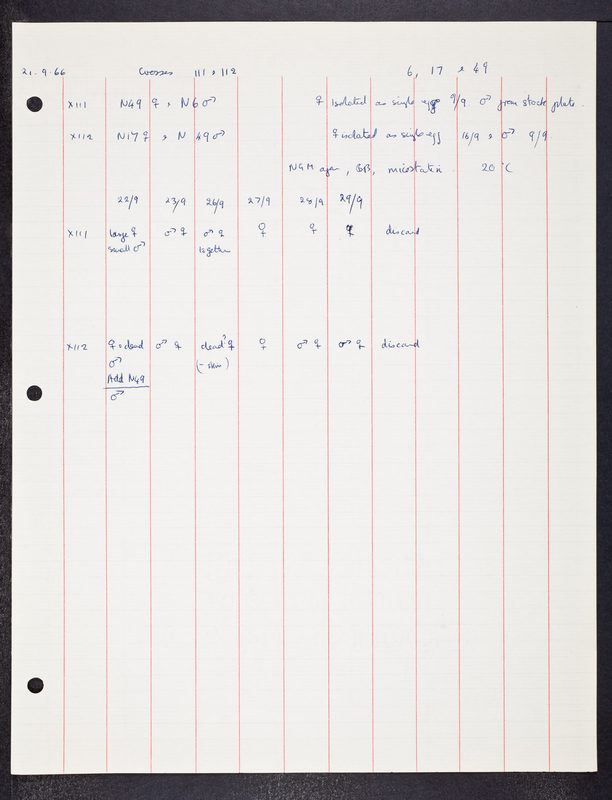 21.9.66 Crosses 111 & 112 6, 17 & 49
X111 N49 ♀, N6 ♂ ♀ isolated as single egg 9/9. ♂ from stock plate.
X112 N17 ♀, N 49 ♂ ♀ isolated as single egg 16/9, ♂ 9/9
NGM agar, OB, mycostatin. 20°C
22/9 23/9 26/9 27/9 28/9 29/9
X111 large ♀ ♂ ♀ ♂ ♀ ♀ ♀ ♀ discard
small ♂ together
X112 ♀ & dead ♂ ♀ dead? ♀ ♀ ♂ ♀ ♂ ♀ discard
♂ (- skin)
Add N49
♂